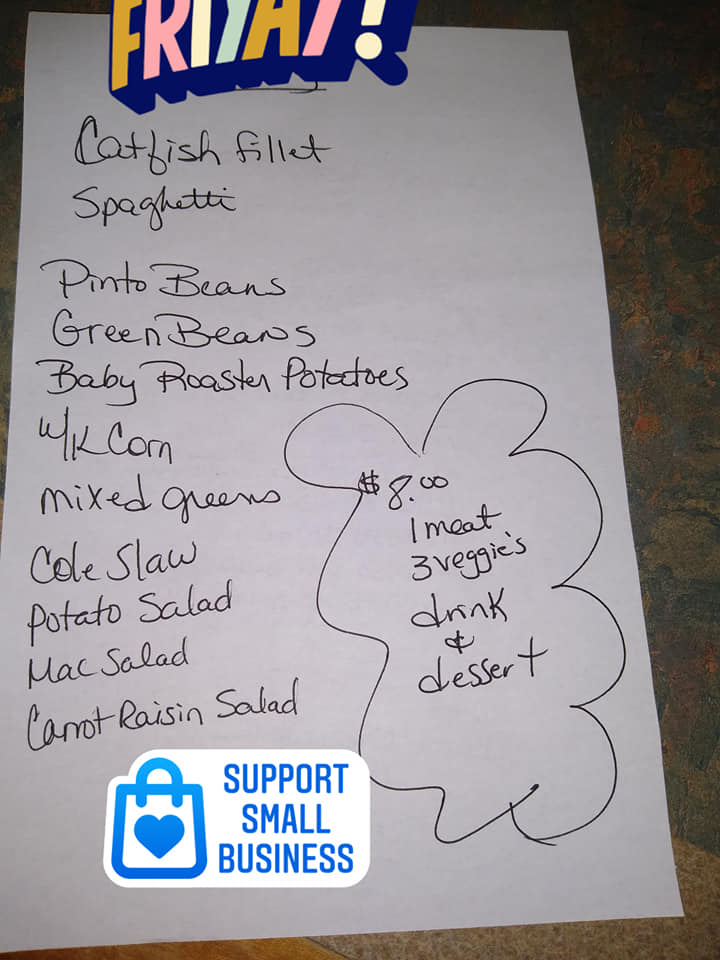 FRIYAY!
Catfish fillet
Spaghetti
Pinto Beans
Green Beans
Baby Roaster Potatoes
W/K Corn
mixed greens
Cole Slaw
Potato Salad
Mac Salad
Carrot Raisin Salad
$8.00
1 meat
3 veggie's
drink
&
dessert
SUPPORT
SMALL
BUSINESS